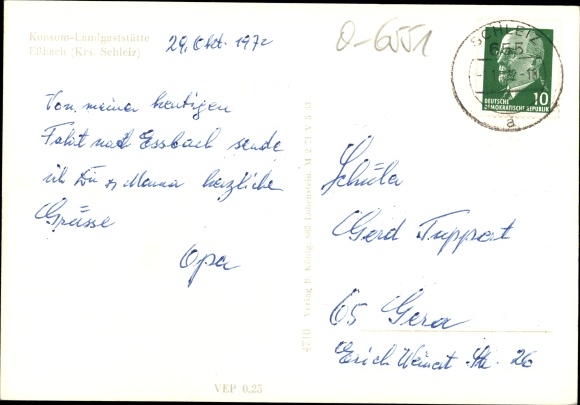 Konsum-Landgaststätte
Eßbach (Krs. Schleiz)
29. Okt. 1972
O-6551
SCHLEIZ
655
DEUTSCHE
DEMOKRATISCHE REPUBLIK
10
a
Von meiner heutigen
Fahrt nach Essbach sende
ich Dir u. Mama herzliche
Grüsse
Opa
Schüler
Gerd Tuppert
65 Gera
Erich Weinert-Str. 26
4710 Verlag R. König, 685 Lobenstein, M 2 71 V 5 03
VEP 0.25